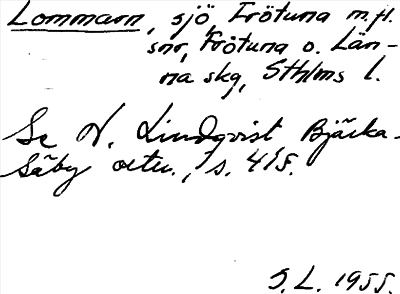 Lommarn, sjö, Frötuna m.fl.
snr, Frötuna o. Län-
na skg, Sthlms l.
Se N. Lindqvist Bjärka-
Säby ortn., s. 418.
S.L. 1955.